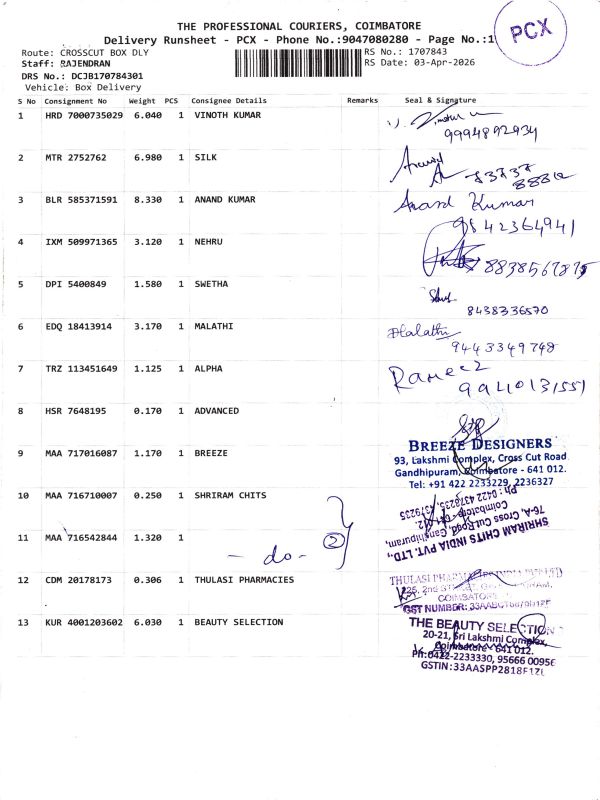 THE PROFESSIONAL COURIERS, COIMBATORE
Delivery Runsheet - PCX - Phone No.:9047080280 - Page No.:1
PCX
Route: CROSSCUT BOX DLY
RS No.: 1707843
Staff: RAJENDRAN
RS Date: 03-Apr-2026
DRS No.: DCJB170784301
Vehicle: Box Delivery
S No Consignment No Weight PCS Consignee Details Remarks Seal & Signature
1 HRD 7000735029 6.040 1 VINOTH KUMAR
9994892934
2 MTR 2752762 6.980 1 SILK
Anand
3 BLR 585371591 8.330 1 ANAND KUMAR Anand Kumar
9842364941
4 IXM 509971365 3.120 1 NEHRU
5 DPI 5400849 1.580 1 SWETHA
8438336570
6 EDQ 18413914 3.170 1 MALATHI Malathi
9443349748
7 TRZ 113451649 1.125 1 ALPHA
9940131551
8 HSR 7648195 0.170 1 ADVANCED
9 MAA 717016087 1.170 1 BREEZE
BREEZE DESIGNERS
93, Lakshmi Complex, Cross Cut Road
Gandhipuram, Coimbatore - 641 012.
Tel: +91 422 2233229, 2236327
10 MAA 716710007 0.250 1 SHRIRAM CHITS
SHRIRAM CHITS INDIA PVT. LTD.,
76-A, Cross Cut Road, Gandhipuram,
Coimbatore - 641 012.
Ph : 0422 4378235, 4379235
11 MAA 716542844 1.320 1
- do - 2
12 CDM 20178173 0.306 1 THULASI PHARMACIES
THULASI PHARMACIES INDIA PVT LTD
COIMBATORE
GST NUMBER:
13 KUR 4001203602 6.030 1 BEAUTY SELECTION
THE BEAUTY SELECTION
20-21, Sri Lakshmi Complex,
Coimbatore - 641 012.
Ph:0422-2233330, 95666 00956